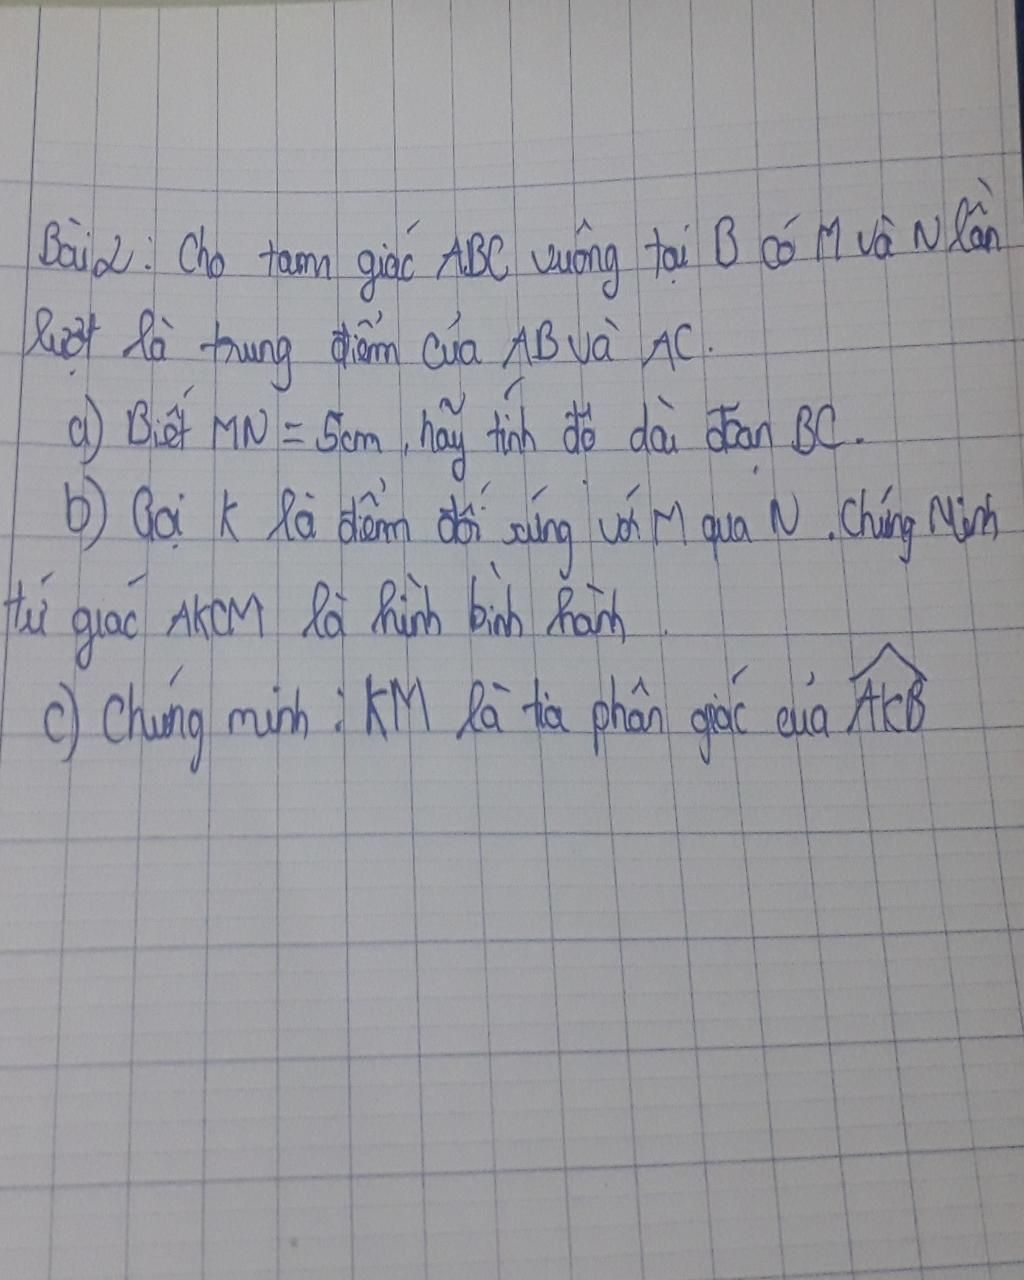 Bài 2: Cho tam giác ABC vuông tại B có M và N lần
lượt là trung điểm của AB và AC.
a) Biết MN = 5cm, hãy tính độ dài đoạn BC.
b) Gọi K là điểm đối xứng với M qua N. Chứng Minh
tứ giác AKCM là hình bình hành.
c) Chứng minh: KM là tia phân giác của \widehat{AKB}